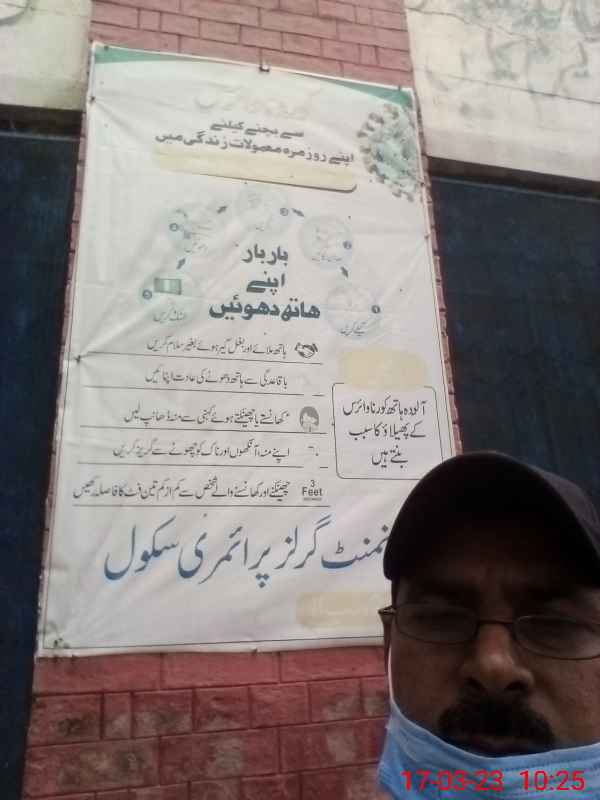 سے بچنے کیلئے
اپنے روزمرہ معمولات زندگی میں
بار بار
اپنے
ہاتھ دھوئیں
گیلے کریں
صابن لگائیں
خشک کریں
ہاتھ ملائے اور بغل گیر ہوئے بغیر سلام کریں
باقاعدگی سے ہاتھ دھونے کی عادت اپنائیں
کھانستے یا چھینکتے ہوئے کہنی سے منہ ڈھانپ لیں
اپنے منہ، آنکھوں اور ناک کو چھونے سے گریز کریں
چھینکنے اور کھانسنے والے شخص سے کم از کم تین فٹ کا فاصلہ رکھیں
3
Feet
آلودہ ہاتھ کورنا وائرس
کے پھیلاؤ کا سبب
بنتے ہیں
نمنٹ گرلز پرائمری سکول
17-03-23 10:25